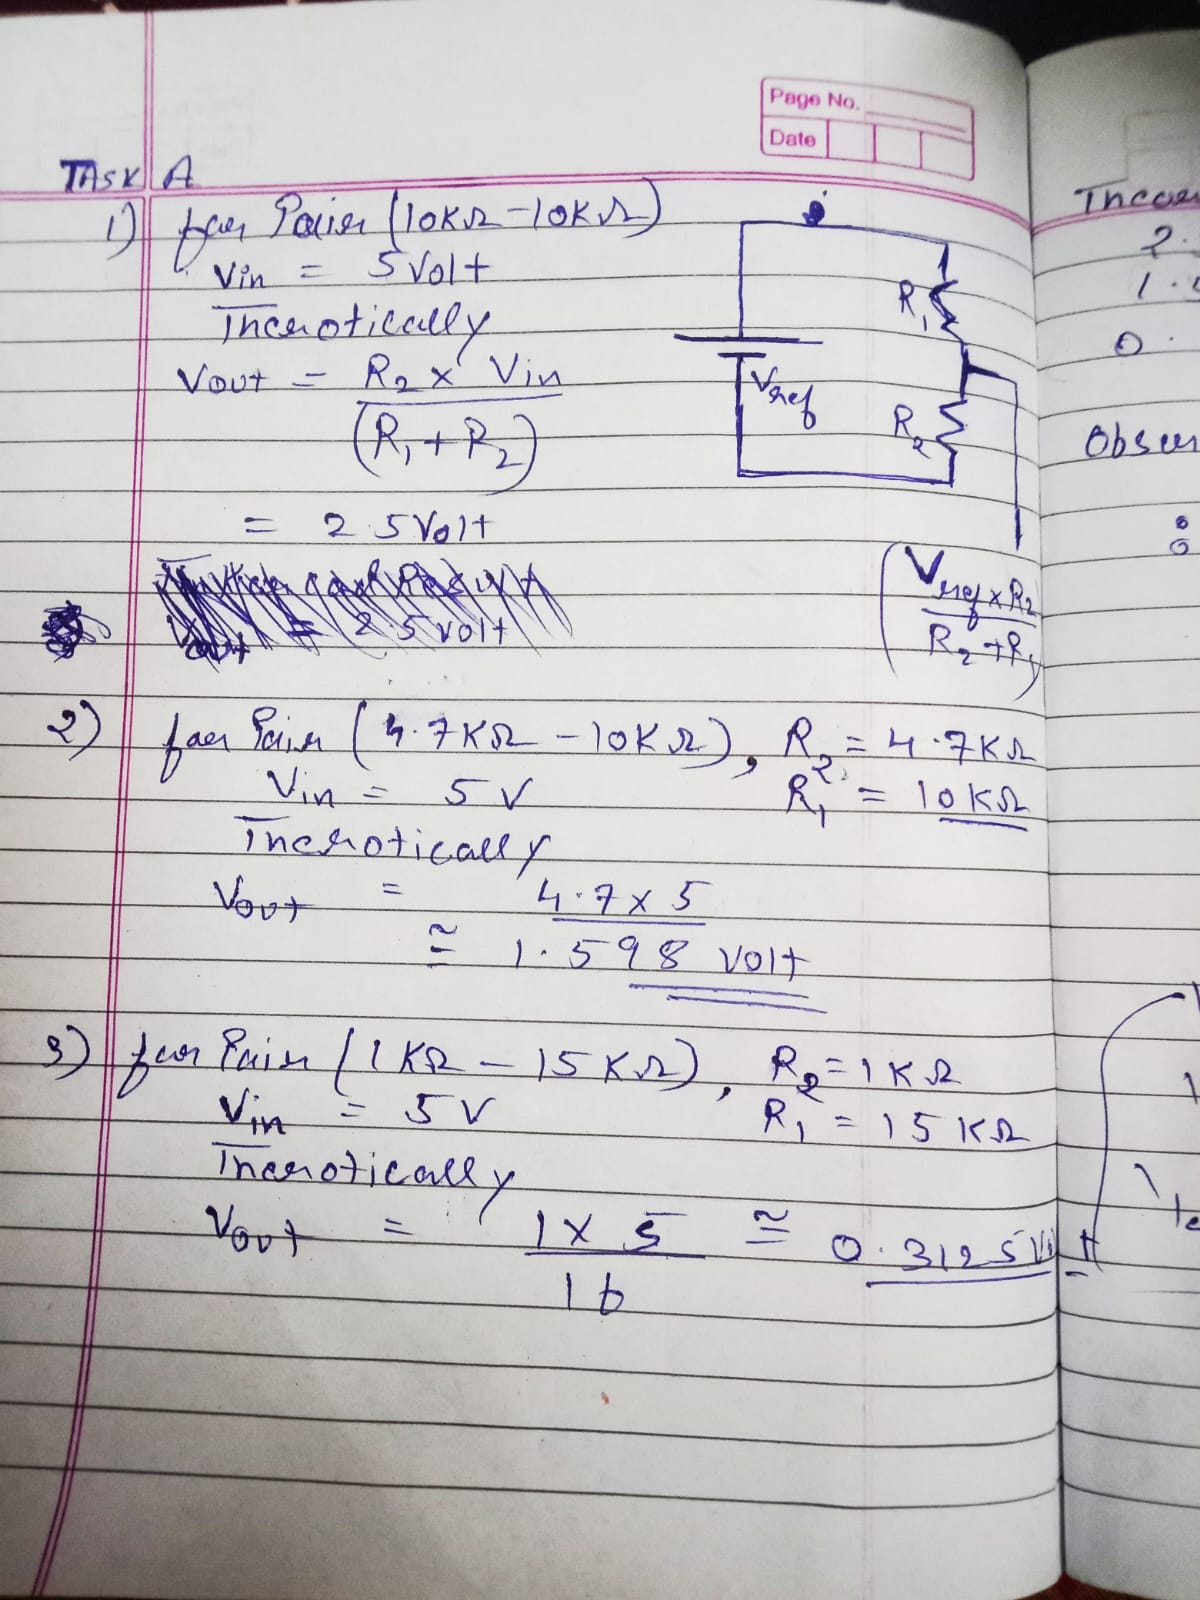 Page No.
Date
TASK A
1) for Pair (10KΩ-10KΩ)
Vin = 5 Volt
Theorotically
Vout = R2 x Vin
(R1+R2)
= 2.5 Volt
= 2.5 volt
R1
Vref
R2
(Vref x R2
R2+R1)
2) for Pair (4.7KΩ - 10KΩ), R2 = 4.7KΩ
Vin = 5 V R1 = 10KΩ
Theorotically
Vout = 4.7 x 5
≅ 1.598 Volt
3) for Pair (1KΩ - 15KΩ), R2 = 1KΩ
Vin = 5V R1 = 15KΩ
Theorotically
Vout = 1 x 5 ≅ 0.3125Volt
16
2.
1.
0.